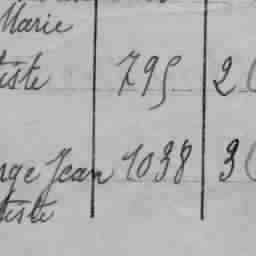 Marie
tiste 795 2
rge Jean 1038 3
tiste